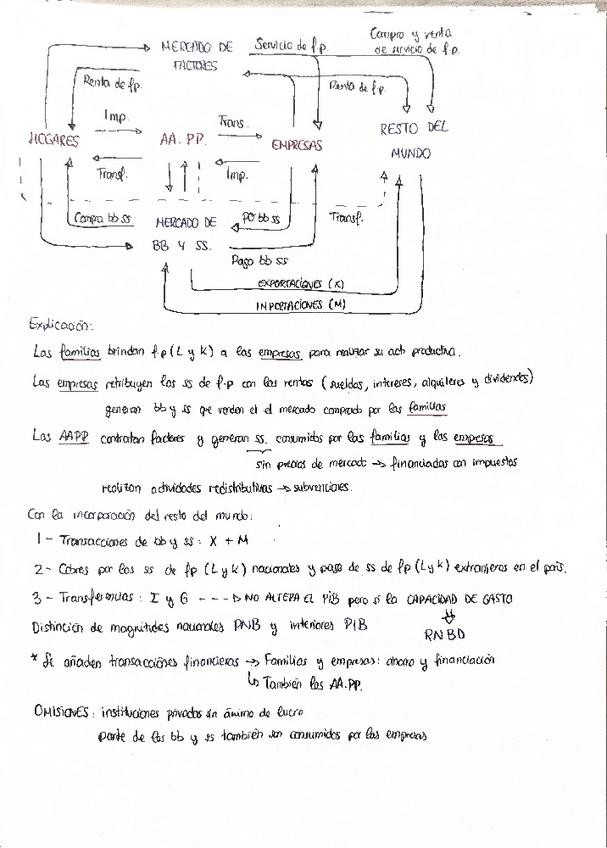 MERCADO DE FACTORES
Servicio de f.p.
Compra y venta
de servicio de f.p.
Renta de fp.
Renta de f.p.
Imp.
Trans.
HOGARES
AA. PP.
EMPRESAS
RESTO DEL
MUNDO
Transf.
Imp.
Compra bb ss
MERCADO DE
BB Y SS.
PD bb ss
Transf.
Pago bb ss
EXPORTACIONES (X)
IMPORTACIONES (M)
Explicación:
Las familias brindan f.p (L y K) a las empresas para realizar su act. productiva.
Las empresas retribuyen los ss de f.p con las rentas (sueldos, intereses, alquileres y dividendos)
generan bb y ss que venden el el mercado comprado por las familias
Las AAPP contratan factores y generan ss. consumidos por las familias y las empresas
sin precios de mercado → financiadas con impuestos
realizan actividades redistributivas → subvenciones.
Con la incorporación del resto del mundo:
1 - Transacciones de bb y ss: X + M
2 - Cobros por los ss de fp (L y K) nacionales y pago de ss de fp (L y K) extranjeros en el país.
3 - Transferencias: I y G - - - ▷ NO ALTERA EL PIB pero si la CAPACIDAD DE GASTO
Distinción de magnitudes nacionales PNB y interiores PIB
RNBD
* Se añaden transacciones financieras → Familias y empresas: ahorro y financiación
↳ También las AA.PP.
OMISIONES: instituciones privadas sin ánimo de lucro
parte de los bb y ss también son consumidos por las empresas